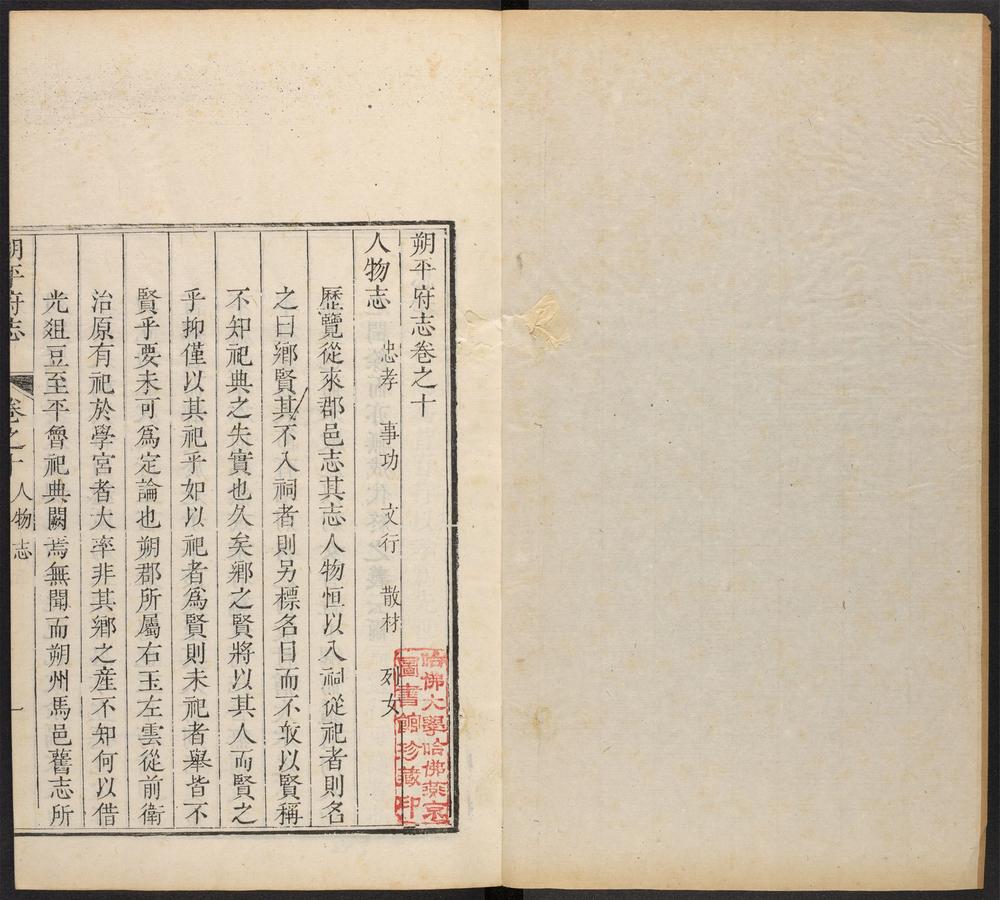 朔平府志卷之十
人物志
忠孝 事功 文行 散材 列女
歷覽從來郡邑志其志人物恒以入祠從祀者則名
之曰鄉賢其不入祠者則另標名目而不敢以賢稱
不知祀典之失實也久矣鄉之賢將以其人而賢之
乎抑僅以其祀乎如以祀者爲賢則未祀者舉皆不
賢乎要未可爲定論也朔郡所屬右玉左雲從前衛
治原有祀於學宮者大率非其鄉之産不知何以借
光俎豆至平魯祀典闕焉無聞而朔州馬邑舊志所
朔平府志 卷之十 人物志 一
哈佛大學哈佛燕京
圖書館珍藏印